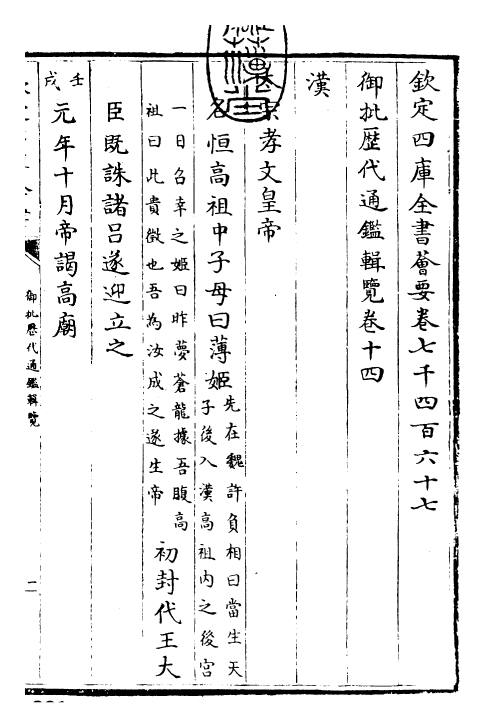 欽定四庫全書薈要卷七千四百六十七
御批歷代通鑑輯覽卷十四
漢
太宗孝文皇帝
名恒高祖中子母曰薄姬先在魏許負相曰當生天
子後入漢高祖內之後宮
一日召幸之姬曰昨夢蒼龍據吾腹高
祖曰此貴徵也吾為汝成之遂生帝初封代王大
臣既誅諸呂遂迎立之
壬戌元年十月帝謁高廟
御批歷代通鑑輯覽
二